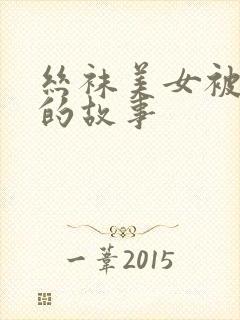 丝袜美女被
的故事
一苇2015